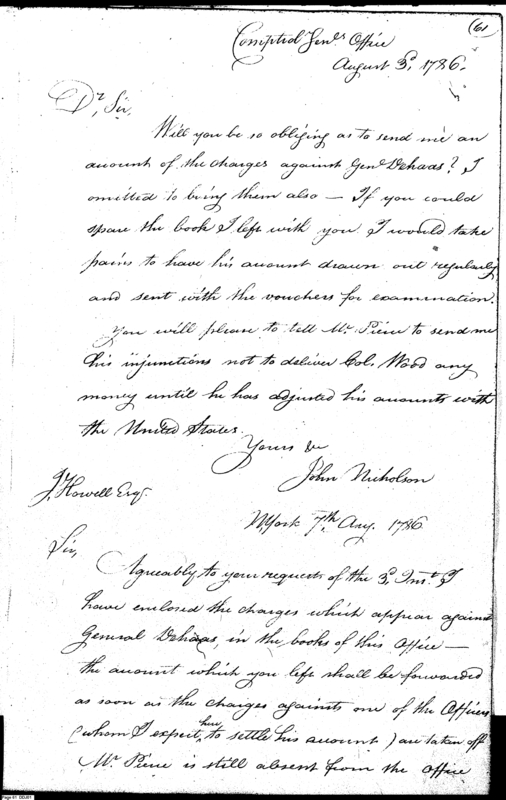 (61
Comptrol Genls Office
August 3d, 1786.
Dr, Sir,
Will you be so obliging as to send me an
account of the charges against Genl Dehaas? I
omitted to bring them also — If you could
spare the book I left with you I would take
pains to have his account drawn out regularly
and sent with the vouchers for examination.
You will please to tell Mr. Pierce to send me
his injunctions not to deliver Col. Wood any
money until he has adjusted his accounts with
the United States.
Yours &c
John Nicholson
J. Howell Esqr.
N,York 7th, Aug. 1786
Sir,
Agreeably to your requests of the 3d, Inst. I
have enclosed the charges which appear against
General Dehaas, in the books of this Office —
the account which you left shall be forwarded
as soon as the charges against one of the Officers
(whom I expect here, to settle his account) are taken off
Mr. Pierce is still absent from the Office